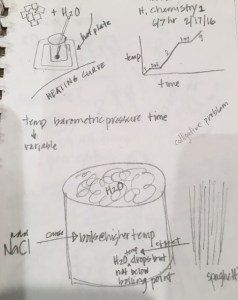 + H2O
hot plate
HEATING CURVE
H. Chemistry 1
6/7 hr 2/17/16
temp
time
temp barometric pressure time
variable
colligative problem
H2O
NaCl
cause
boils @ higher temp
effect
H2O drops but
not below
boiling point
spaghetti